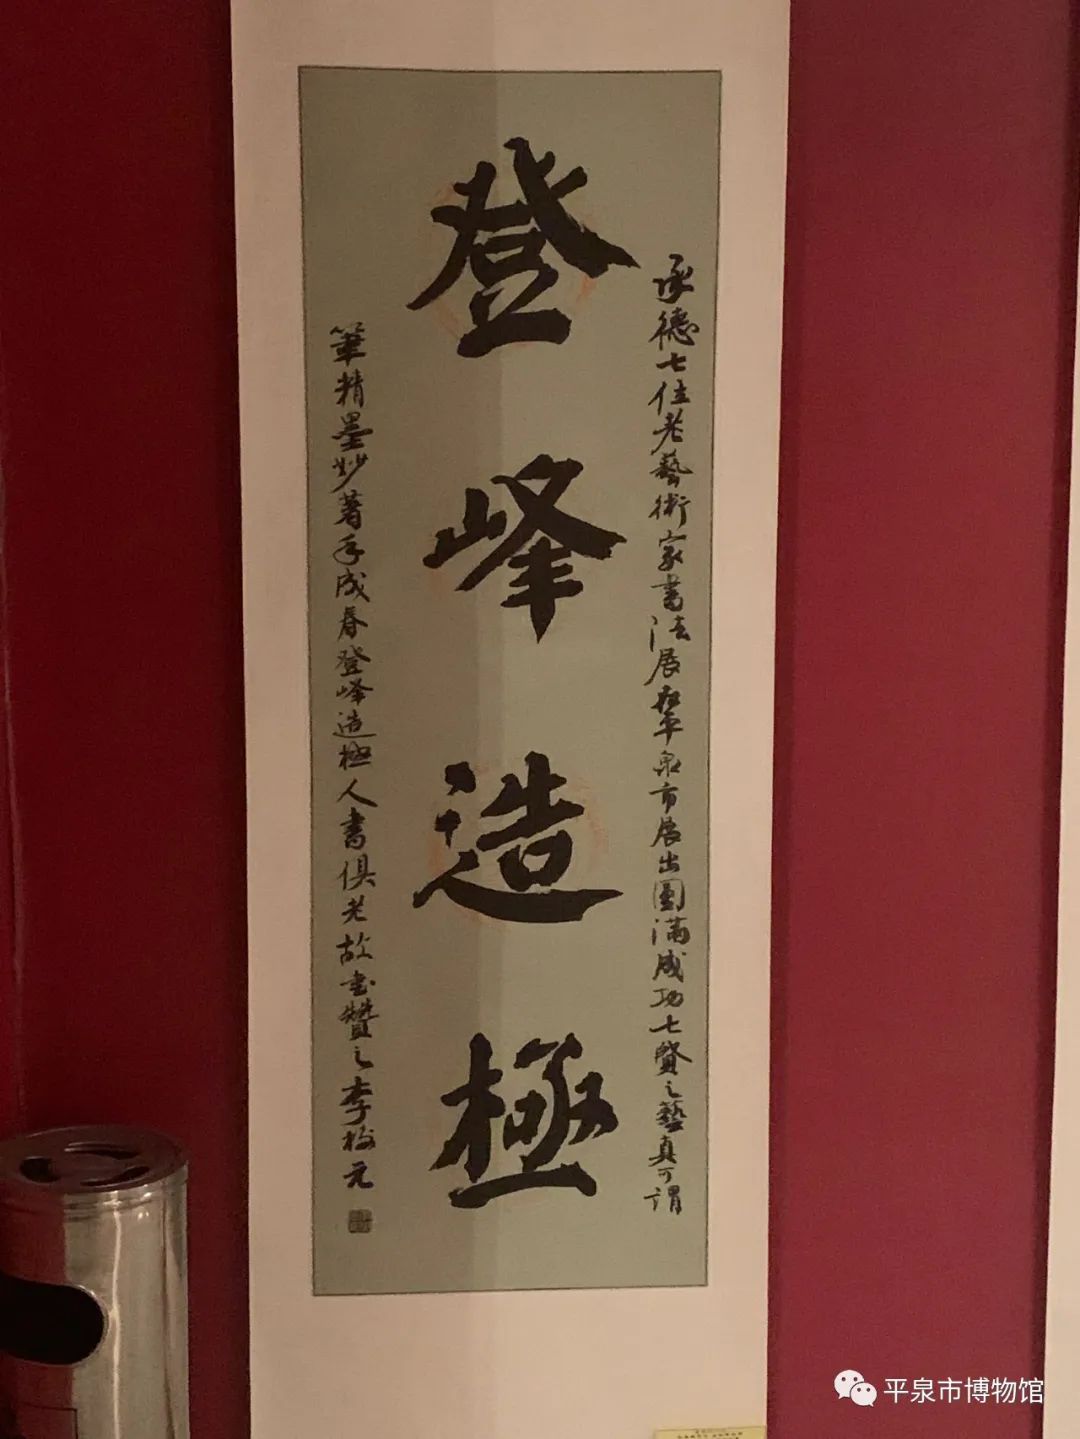 承德七位老藝術家書法展在平泉市展出圓滿成功七賢之藝真可謂
登峰造極
筆精墨妙著手成春登峰造極人書俱老故書贊之李樹元
平泉市博物馆